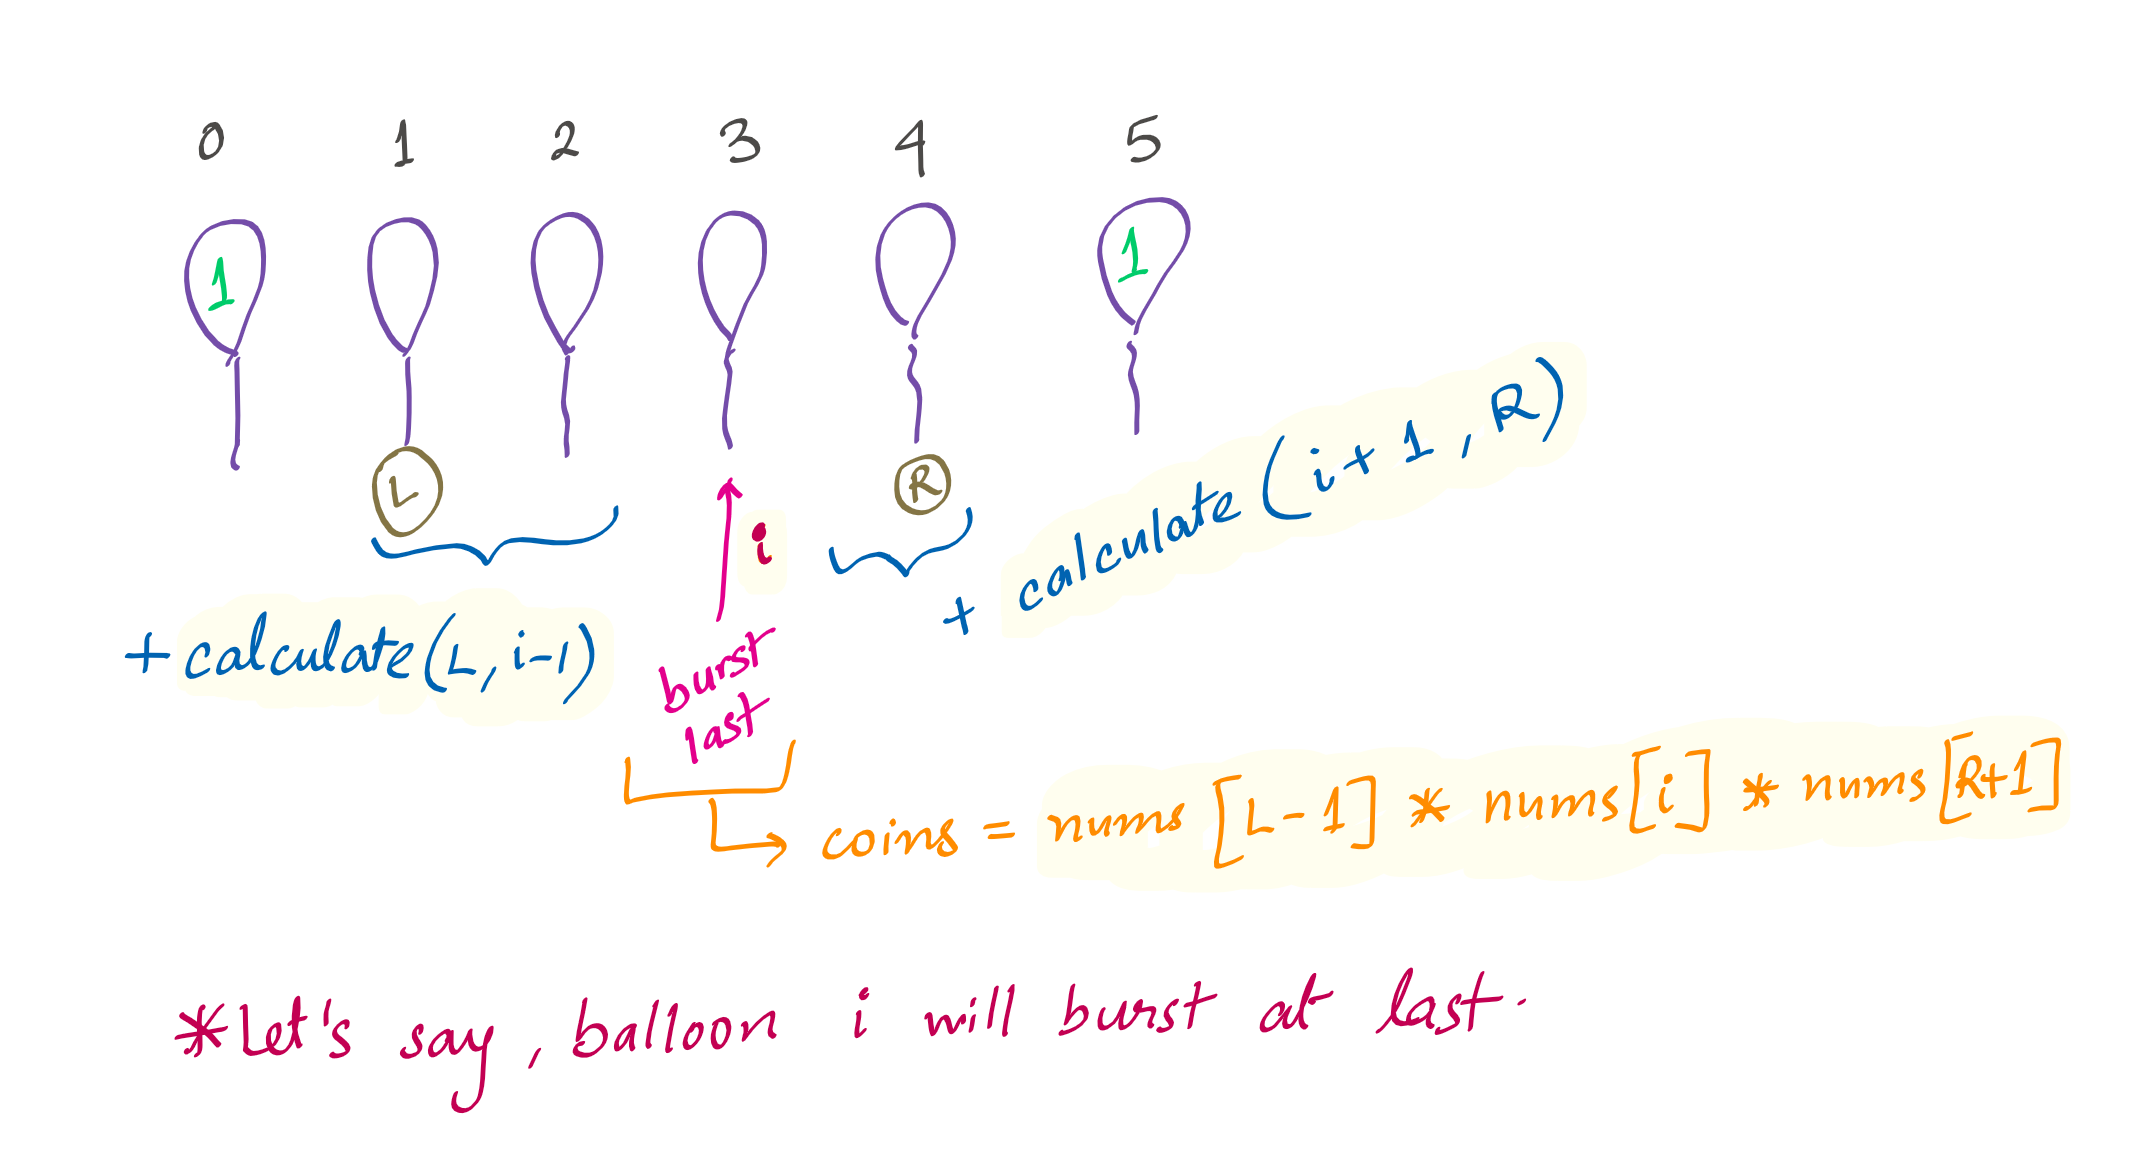 0 1 2 3 4 5
1 1
L R
i
+ calculate (i+1, R)
+ calculate (L, i-1)
burst
last
coins = nums [L-1] * nums[i] * nums[R+1]
*Let's say, balloon i will burst at last.